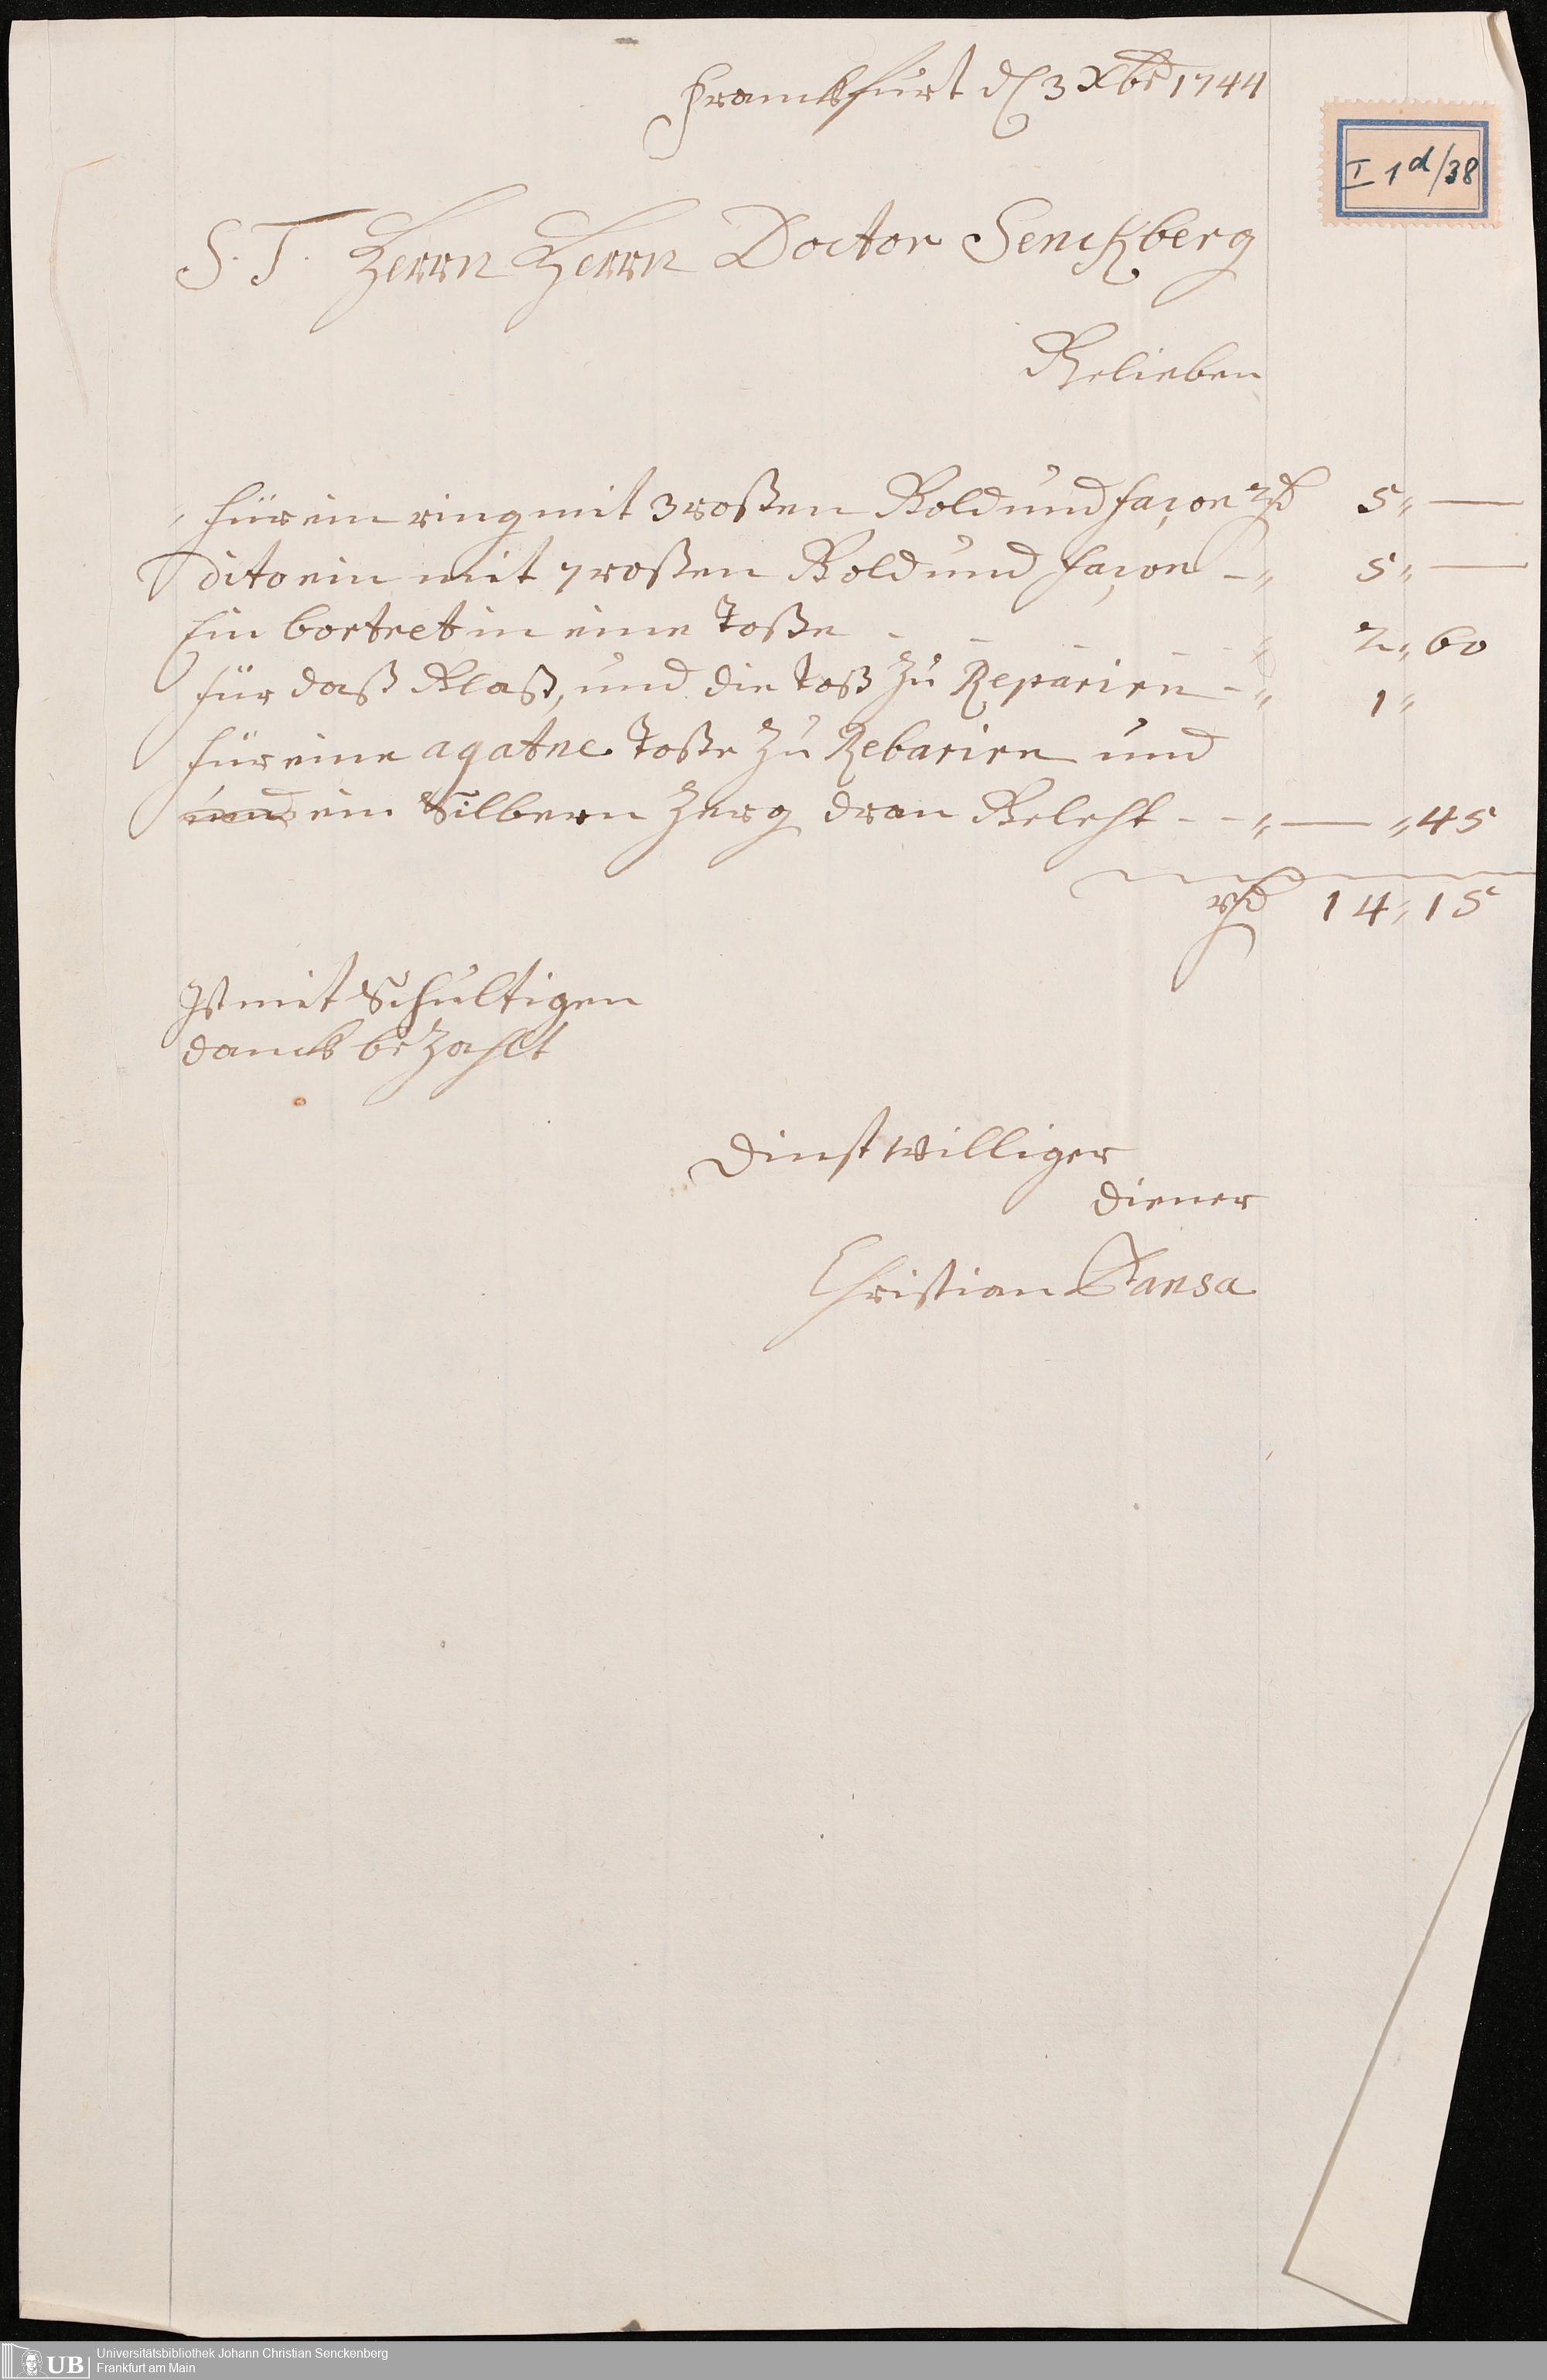 Franckfurt d 3 Xbr 1744
I 1 d/38
S. T. Herrn Herrn Doctor Senckberg
Belieben
für ein ring mit 3 roßen Gold und façon rth 5 „ —
dito ein mit 7 roßen Gold und façon - „ 5 „ —
Ein bortret in eine Toße - - - - - „ 2 „ 60
für daß Glaß, und die Toß zu Reparirn - „ 1 „
für eine agatne Toße zu Rebarirn und
ein Silbern Zerg dran Geleht - - „ — „ 45
rth 14 „ 15
Ist mit Schultigen
danck bezahlt
Dinstwilliger
diener
Christian
Universitätsbibliothek Johann Christian Senckenberg
Frankfurt am Main
UB